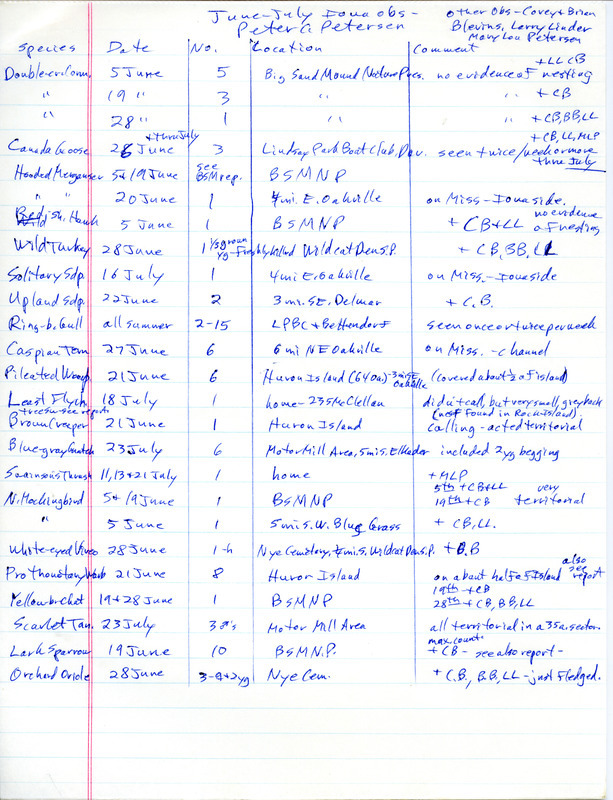 June-July Iowa obs-
Peter C. Petersen
Other Obs-Corey & Brian
Blevins, Larry Linder
Mary Lou Petersen
Species Date No. Location Comment
+LL CB
Double-cr. Corm. 5 June 5 Big Sand Mound Nature Pres. no evidence of nesting
" 19 " 3 " " +CB
" 28 " 1 " " +CB, BB, LL
+ thru July +CB, LL, MLP
Canada Goose 28 June 3 Lindsay Park Boat Club, Dav. seen twice/week or more
thru July
Hooded Merganser 5&19 June see BSM rep. BSMNP
" 20 June 1 4 mi. E. Oakville on Miss-Iowa side.
Red-sh. Hawk 5 June 1 BSMNP +CB+LL no evidence of nesting
Wild Turkey 28 June 1 yg Freshly killed Wildcat Den S.P. +CB, BB, LL
Solitary Sdp. 16 July 1 4 mi E. Oakville on Miss.-Iowa side
Upland Sdp. 22 June 2 3 mi. SE. Delmar +C.B.
Ring-b. Gull all summer 2-15 LPBC + Bettendorf seen once or twice per week
Caspian Tern 27 June 6 6 mi NE Oakville on Miss.-channel
Pileated Woodp. 21 June 6 Huron Island (640a)-3 mi SE Oakville (covered about ½ of island)
Least Flyc. 18 July 1 home-235 McClellan didn't call, but very small, grey back
(nest found in Rock Island)
Brown Creeper 21 June 1 Huron Island calling-acted territorial
Blue-gray Gnatc. 23 July 6 Motor Mill Area, 5 mi S. Elkader included 2 yg begging
Swainsons Thrush 11, 13 & 21 July 1 home +MLP
N. Mockingbird 5&19 June 1 BSMNP 5th +CB+LL very
19th +CB territorial
" 5 June 1 5 mi S.W. Blue Grass +CB, LL.
White-eyed Vireo 28 June 1-h Nye Cemetery, mi S. Wildcat Den S.P. +C.B
Prothonotary Warb 21 June 8 Huron Island on about half of Island also see report
Yellow-br. Chat 19 & 28 June 1 BSMNP 19th +CB
28th +CB, BB, LL
Scarlet Tan. 23 July 3 ♂'s Motor Mill Area all territorial in a 35a. sector
Lark Sparrow 19 June 10 BSMN.P. max. count
+CB - see also report -
Orchard Oriole 28 June 3-a+2yg Nye Cem. +C.B., B.B, LL - just fledged.